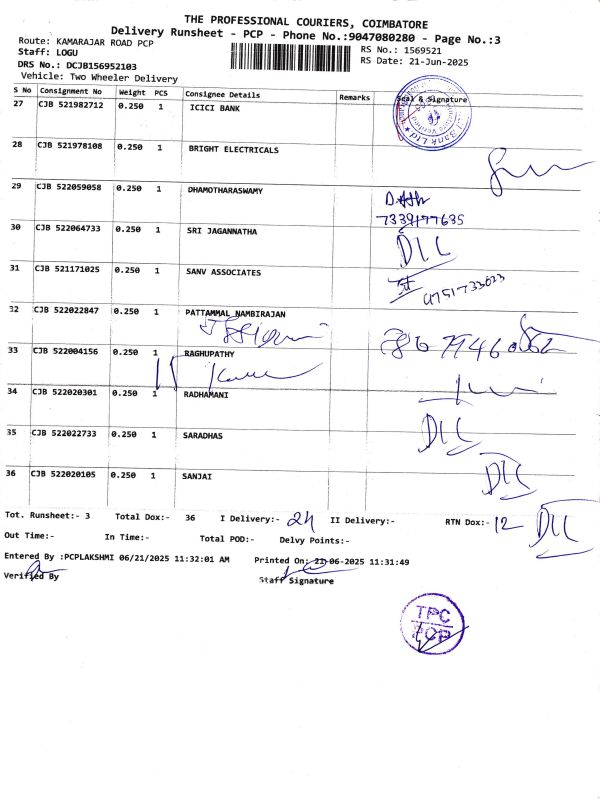 THE PROFESSIONAL COURIERS, COIMBATORE
Delivery Runsheet - PCP - Phone No.:9047080280 - Page No.:3
Route: KAMARAJAR ROAD PCP
RS No.: 1569521
Staff: LOGU
RS Date: 21-Jun-2025
DRS No.: DCJB156952103
Vehicle: Two Wheeler Delivery
S No Consignment No Weight PCS Consignee Details Remarks Seal & Signature
27 CJB 521982712 0.250 1 ICICI BANK
28 CJB 521978108 0.250 1 BRIGHT ELECTRICALS
29 CJB 522059058 0.250 1 DHAMOTHARASWAMY
7339177635
30 CJB 522064733 0.250 1 SRI JAGANNATHA DLC
31 CJB 521171025 0.250 1 SANV ASSOCIATES
32 CJB 522022847 0.250 1 PATTAMMAL NAMBIRAJAN
33 CJB 522004156 0.250 1 RAGHUPATHY
34 CJB 522020301 0.250 1 RADHAMANI
35 CJB 522022733 0.250 1 SARADHAS DLC
36 CJB 522020105 0.250 1 SANJAI DLC
Tot. Runsheet:- 3 Total Dox:- 36 I Delivery:- 24 II Delivery:- RTN Dox:- 12 DLC
Out Time:- In Time:- Total POD:- Delvy Points:-
Entered By :PCPLAKSHMI 06/21/2025 11:32:01 AM Printed On: 21-06-2025 11:31:49
Verified By Staff Signature
TPC
PCP